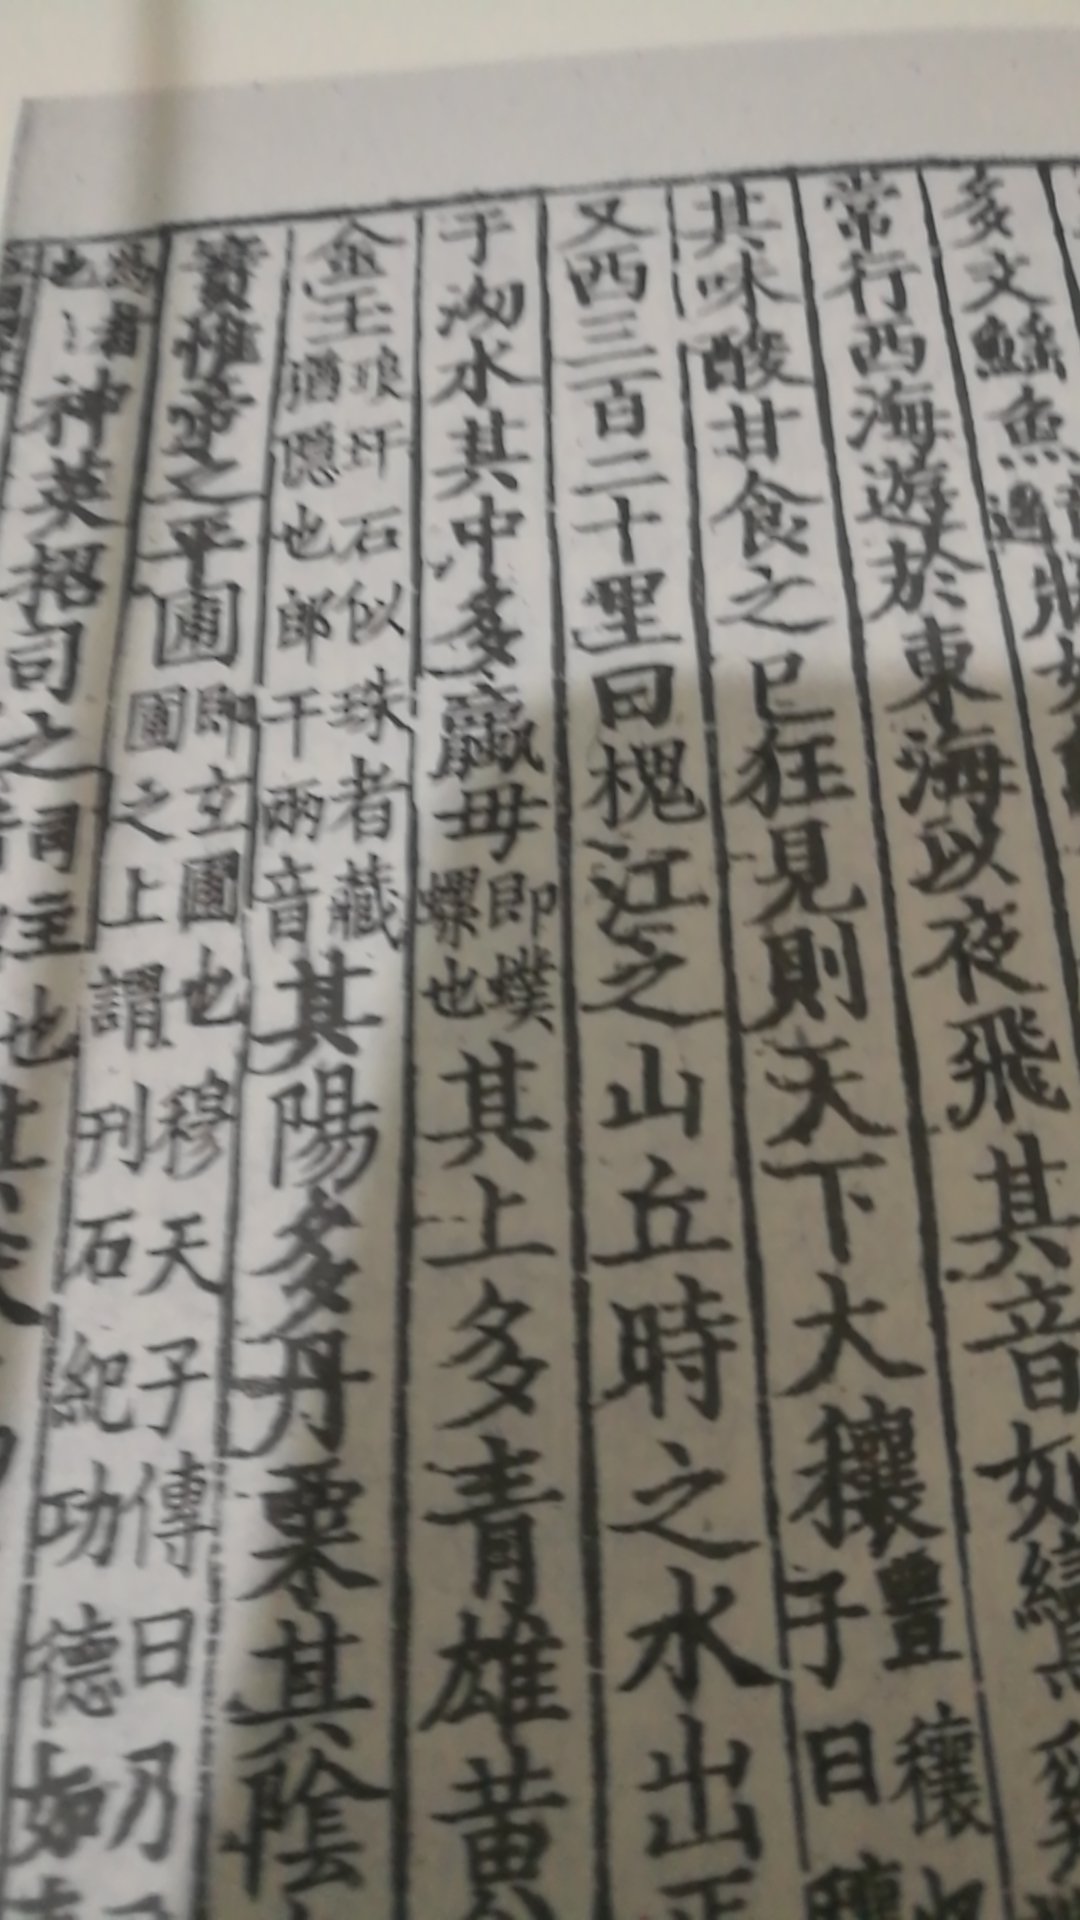 多文鰩魚音遙狀如
常行西海遊於東海以夜飛其音如鸞雞
其味酸甘食之已狂見則天下大穰豐穰
子曰
又西三百二十里曰槐江之山丘時之水出
于泑水其中多蠃母即蟆
螺也
其上多青雄黄
金玉琅玕石似珠者藏
猶隱也郎干兩音
其陽多丹粟其陰
實惟帝之平圃即玄圃也穆天子傳曰乃
圃之上謂刋石紀功德如
也神英招司之司主也其